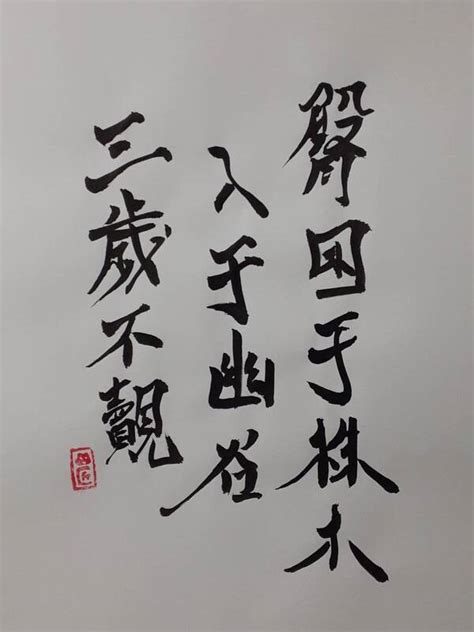 臀困于株木
入于幽谷
三歲不覿